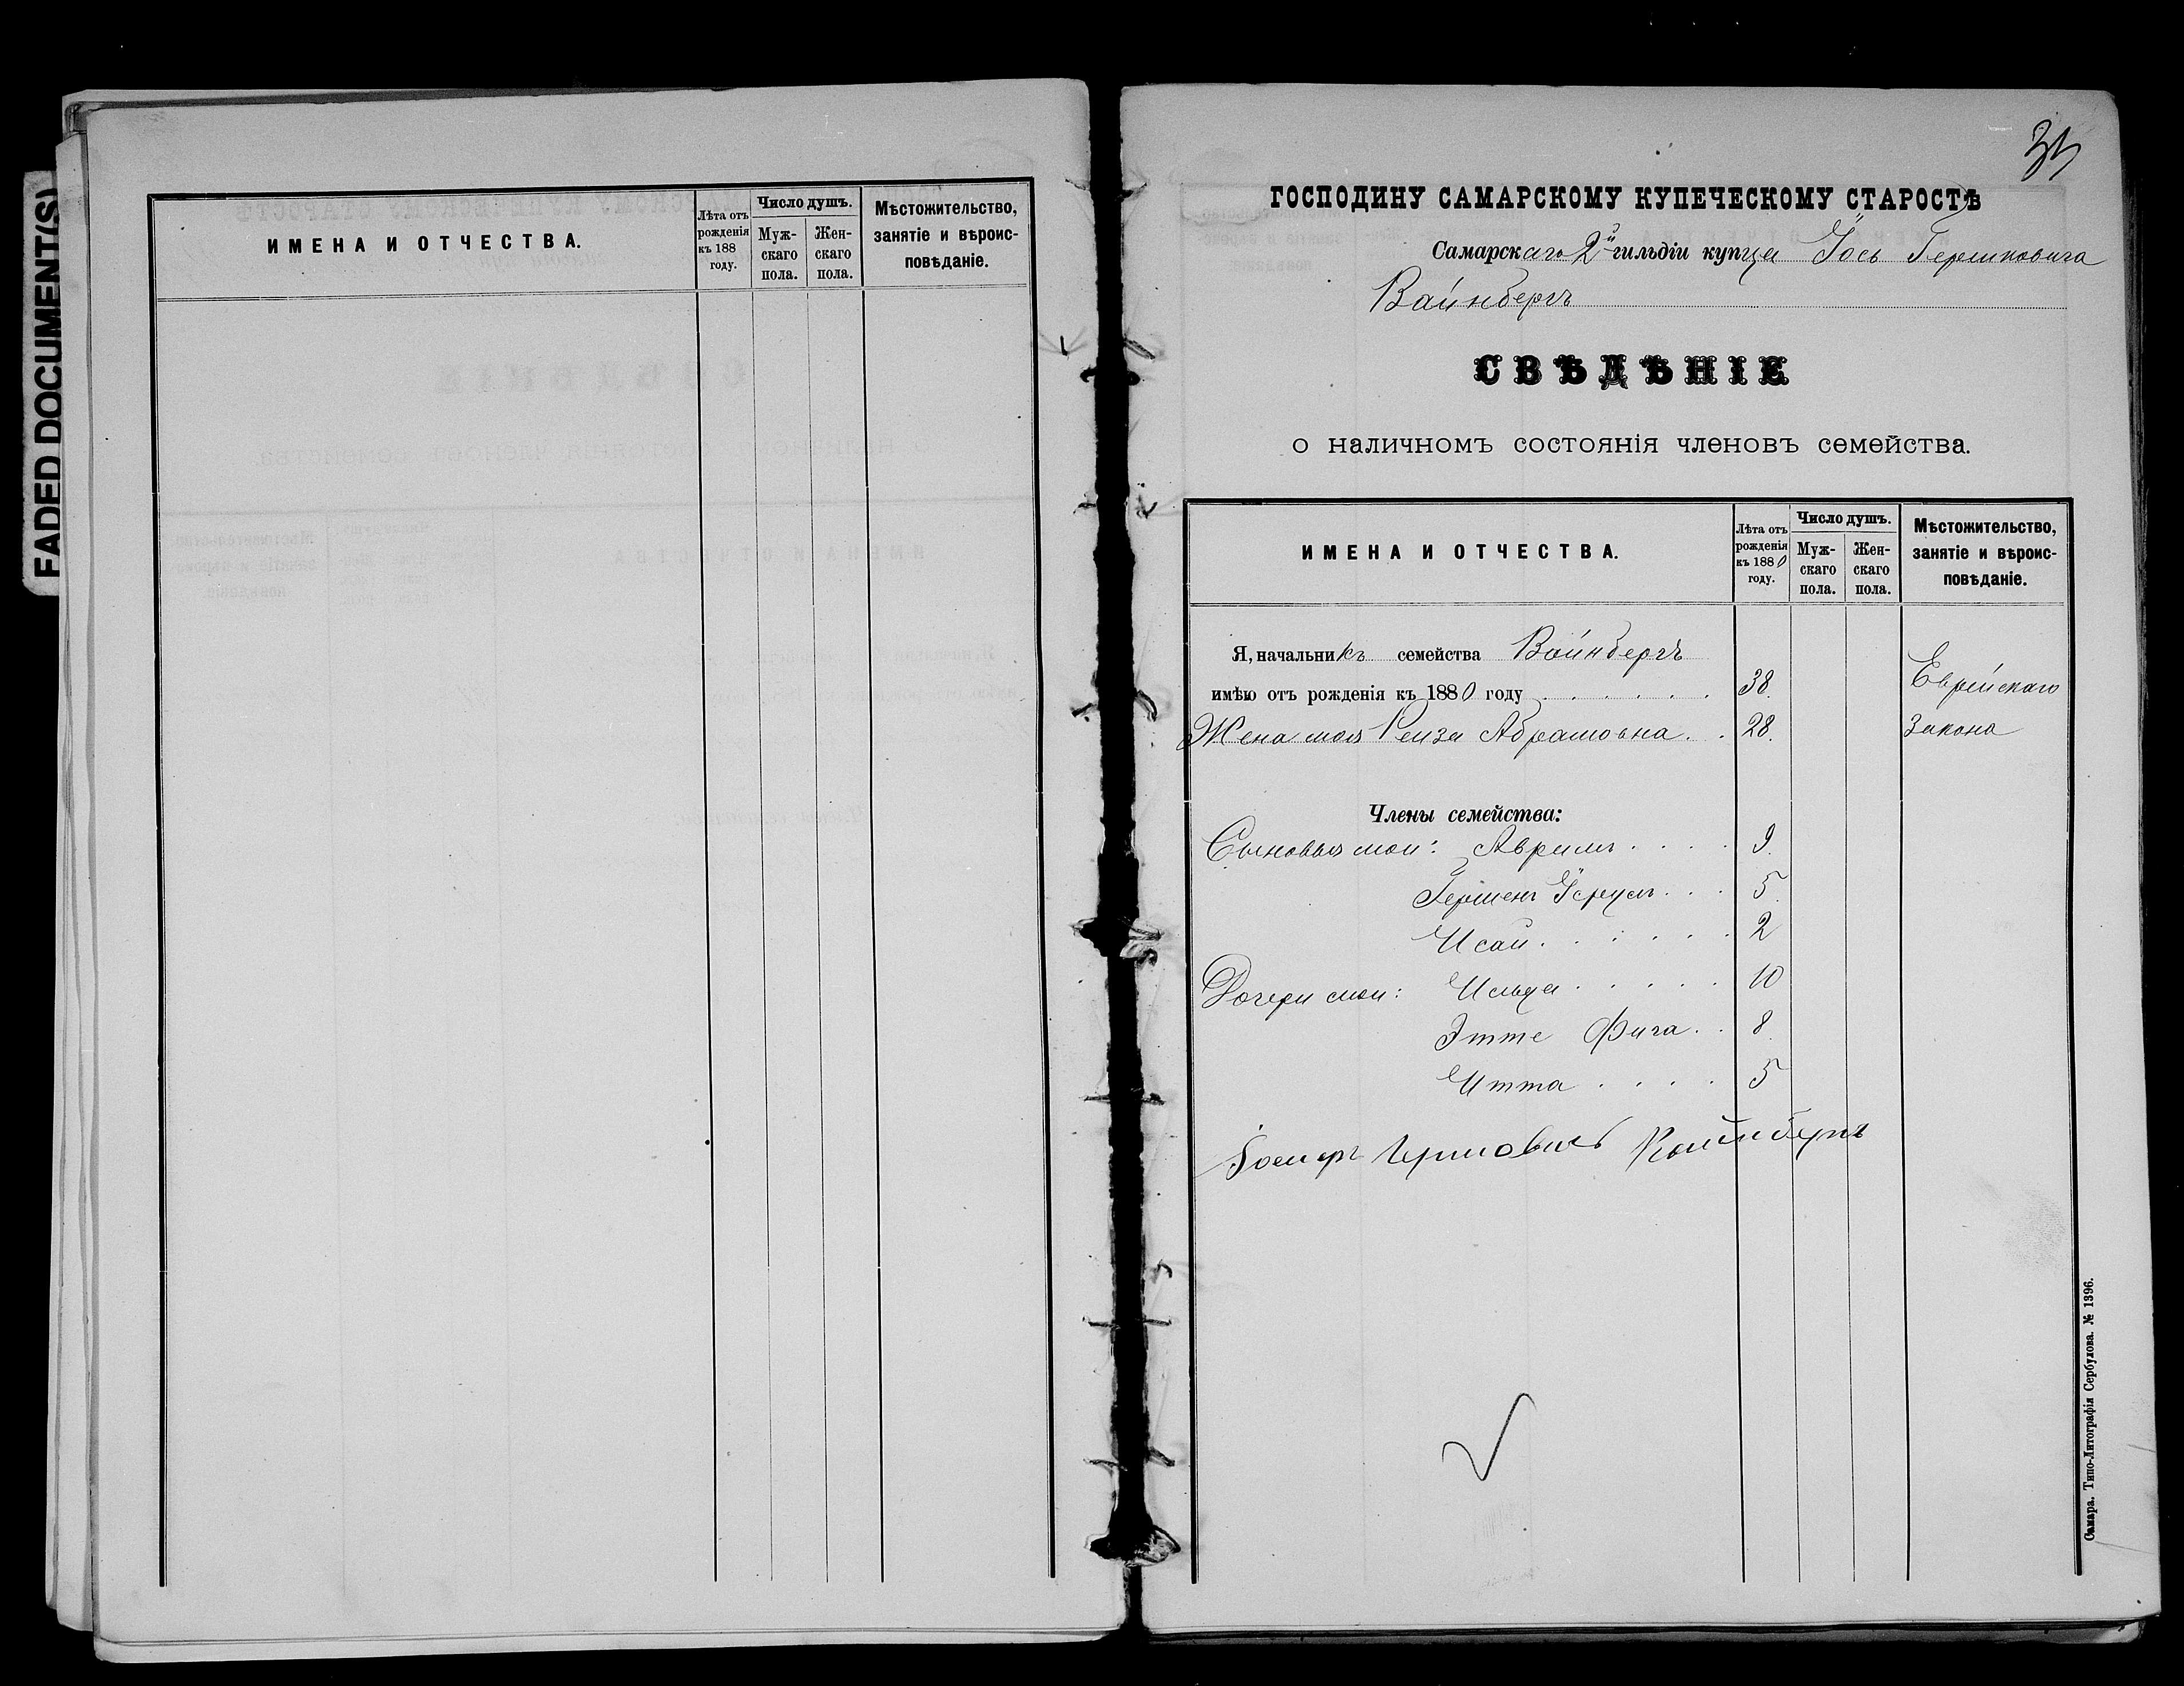 FADED DOCUMENT(S)
ИМЕНА И ОТЧЕСТВА.
Лѣта отъ рожденія къ 188 году.
Число душъ.
Мужскаго пола.
Женскаго пола.
Мѣстожительство, занятіе и вѣроисповѣданіе.
ГОСПОДИНУ САМАРСКОМУ КУПЕЧЕСКОМУ СТАРОСТѢ
Самарскаго 2й гильдіи купца Іось Гершковича
Вайнбергъ
СВѢДѢНІЕ
о наличномъ состоянія членовъ семейства.
ИМЕНА И ОТЧЕСТВА.
Лѣта отъ рожденія къ 1880 году.
Число душъ.
Мужскаго пола.
Женскаго пола.
Мѣстожительство, занятіе и вѣроисповѣданіе.
Я, начальникъ семейства Вайнбергъ
имѣю отъ рожденія къ 1880 году . . . . . . 38. Еврейскаго
Жена моя Рейза Абрамовна . . 28. Закона
Члены семейства:
Сыновья мои: Аврумъ . . . . 9.
Гершенъ Ісруль . . . 5.
Исай . . . . . . 2
Дочери мои: . . . . . 10
Этте Фига . . 8.
Итта . . . . 5
Самара. Типо-Литографія Сербулова. № 1396.